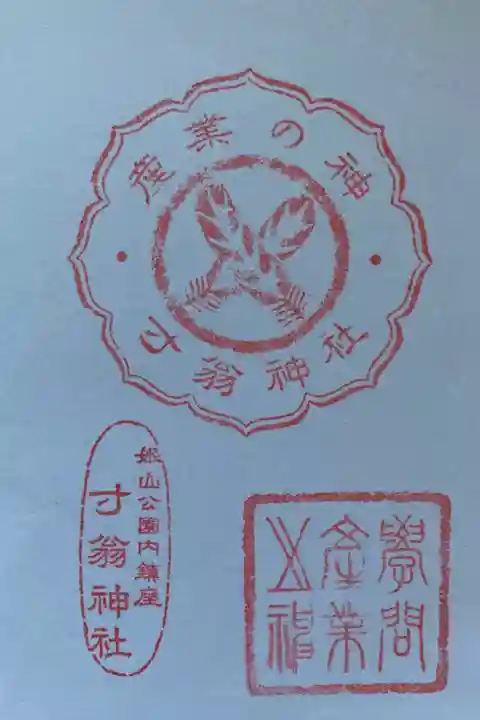 産業の神
寸翁神社
姫山公園内鎮座
寸翁神社
學問
産業
之神